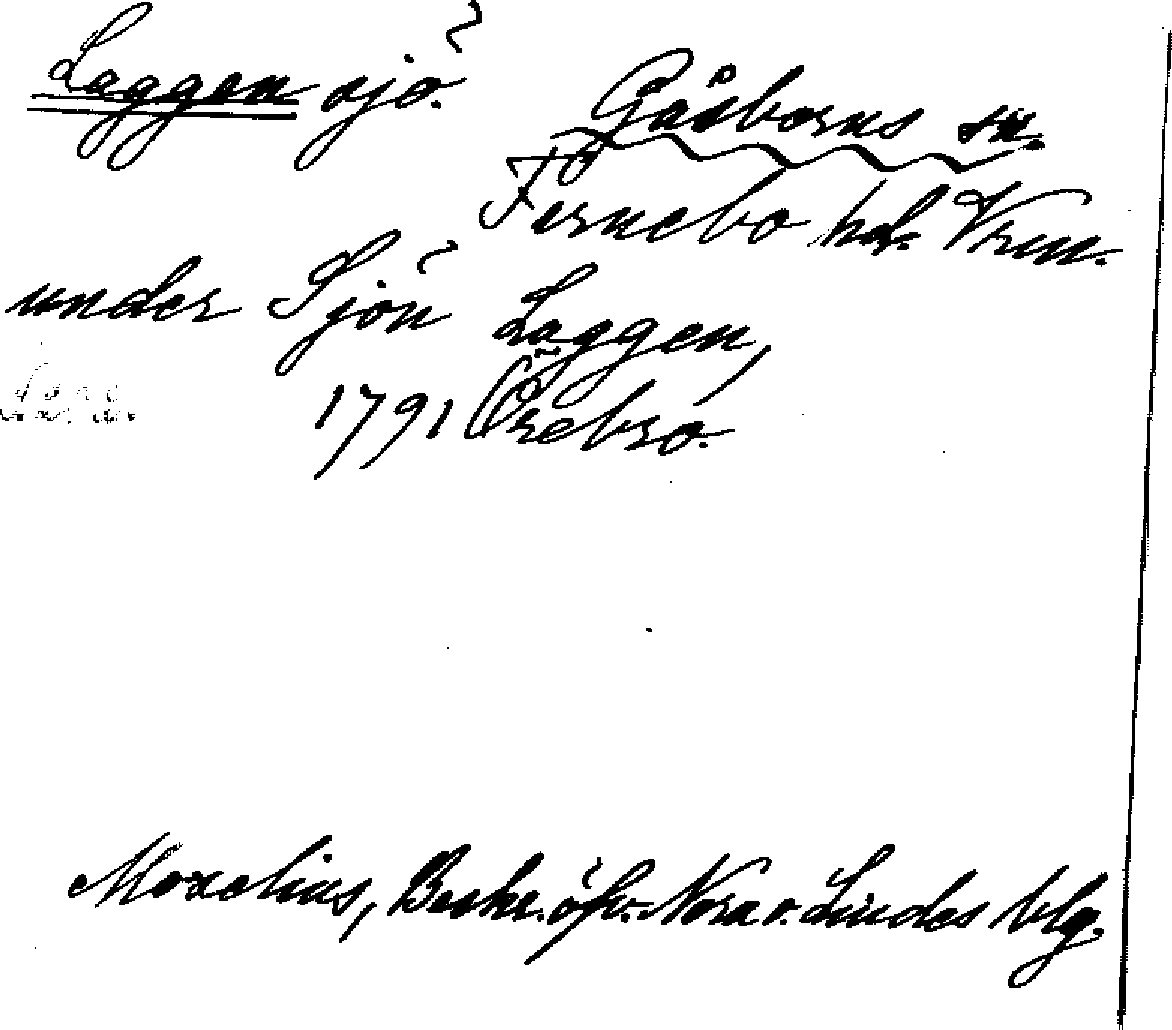 Laggen sjö.
Gåsborns sn.
Färnebo hd. Vrm.
under Sjön Laggen,
1791 Örebro.
Moxelius, Beskr. öfv. Nora o. Lindes blg.